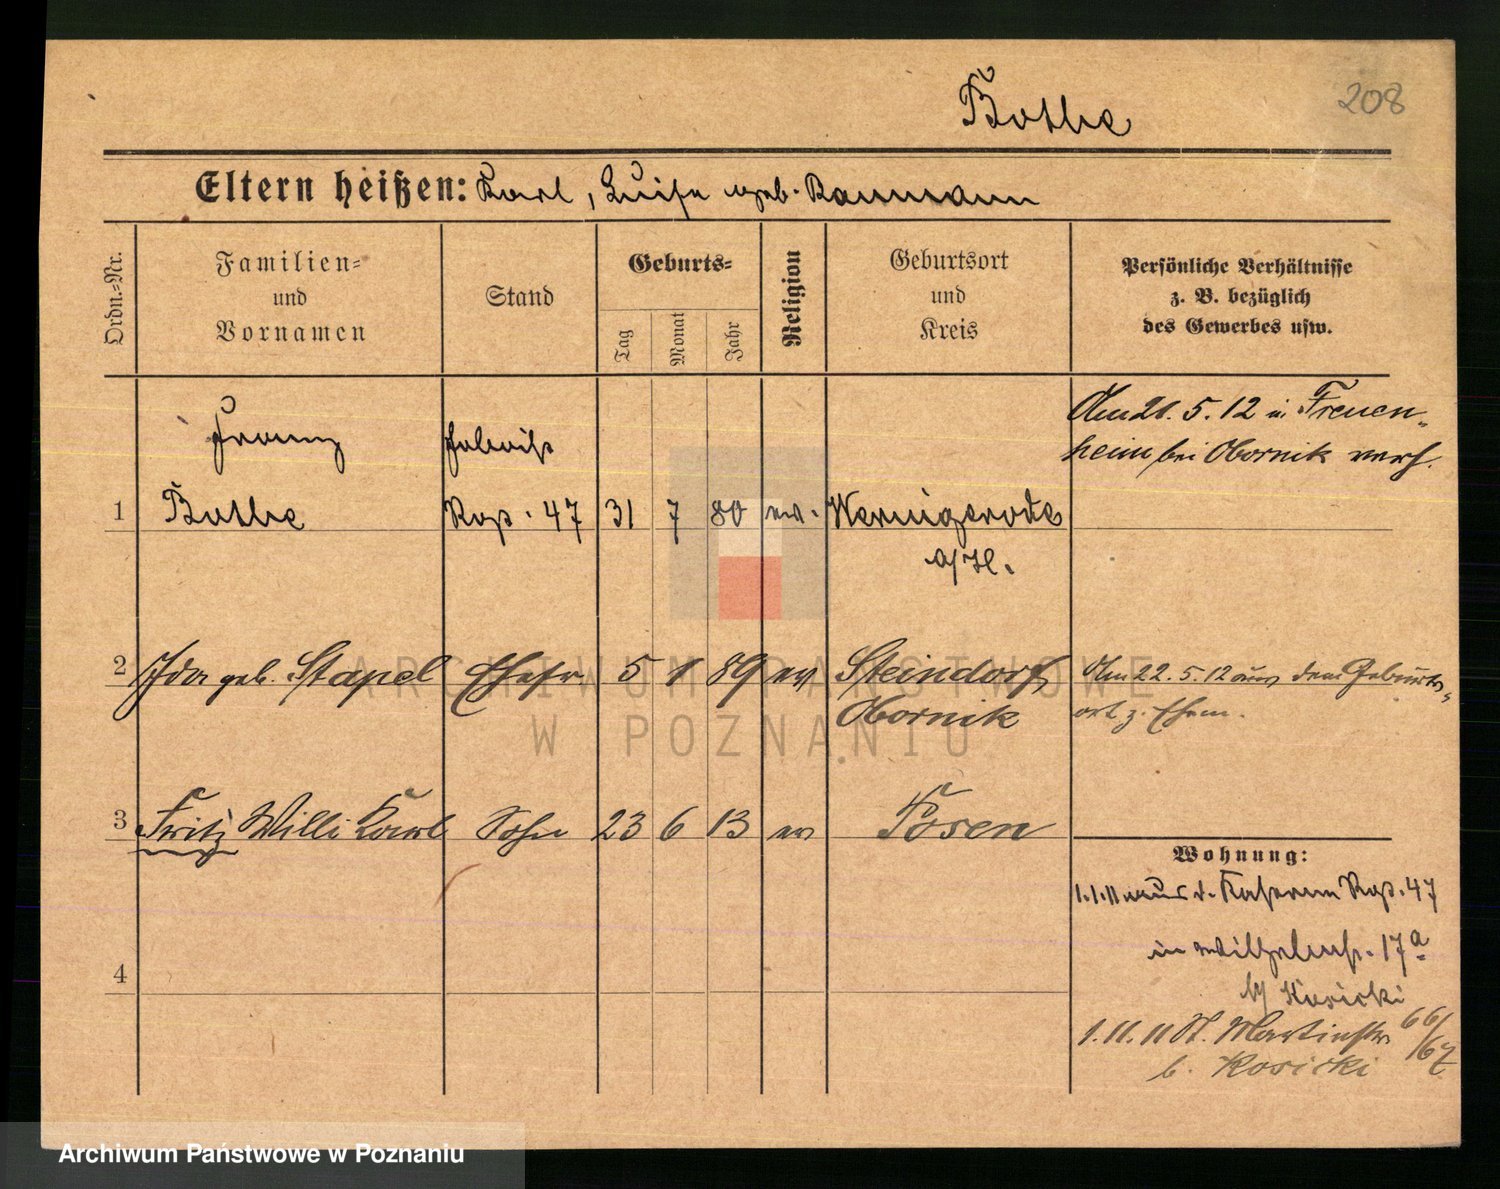 208
Bothe
Eltern heißen: Karl, Luise geb. Baumann
Ordn.-Nr.
Familien-
und
Vornamen
Stand
Geburts-
Tag
Monat
Jahr
Religion
Geburtsort
und
Kreis
Persönliche Verhältnisse
z. B. bezüglich
des Gewerbes usw.
Am 21. 5. 12 in Treuen-
heim bei Obornik verh.
Franz
1 Bothe Rgt. 47 31 7 80 ev. Wernigerode
a/H.
2 Ida geb. Stapel Ehefr 5 1 89 ev Steindorf
Obornik
Am 22. 5. 12 aus dem Geburts-
ort z. Ehem.
3 Fritz Willi Karl Sohn 23 6 13 ev Posen
Wohnung:
1.1.11 aus d. Kaserne Rgt. 47
in Wilhelmstr. 17a
b/ Kosicki
1.11.11 St. Martinstr 66/67
b. Kosicki
4
ARCHIWUM PAŃSTWOWE
W POZNANIU
Archiwum Państwowe w Poznaniu